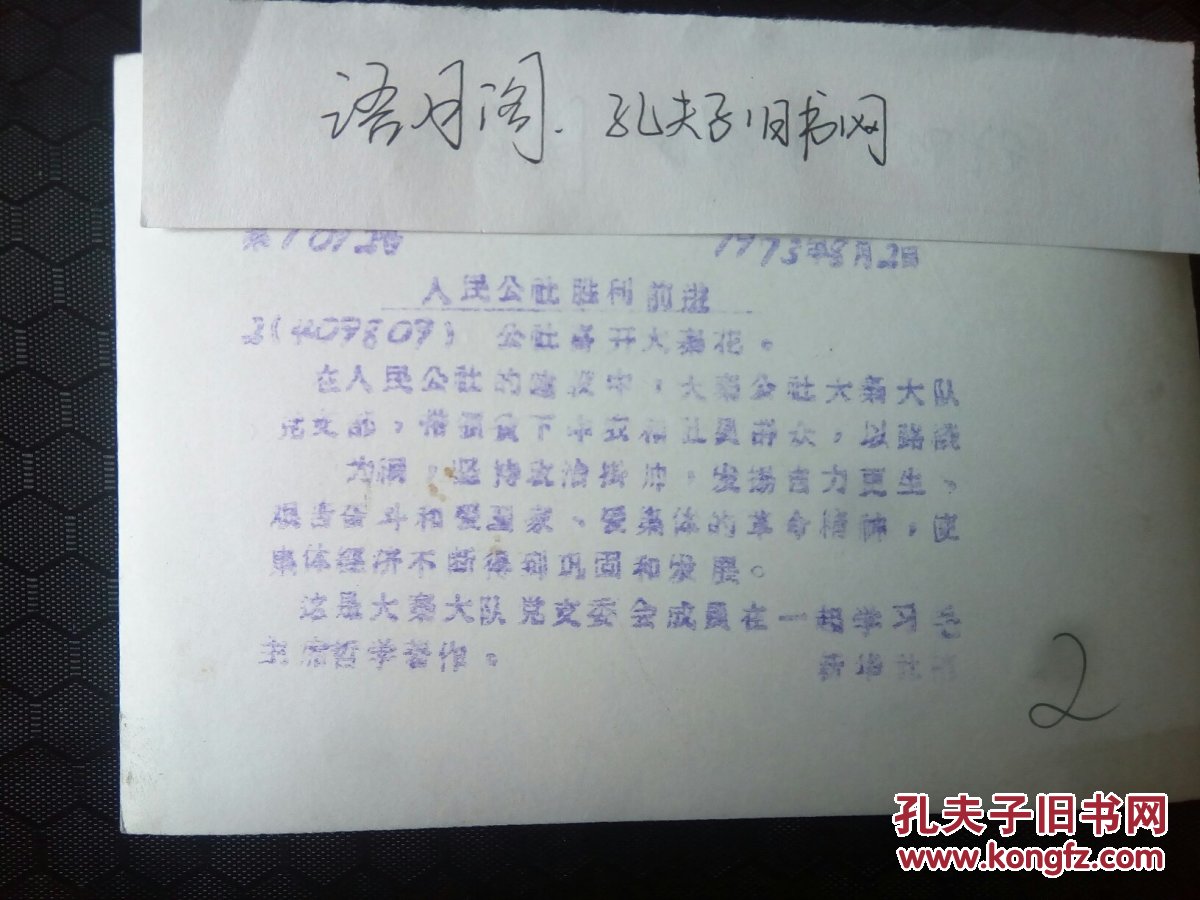 语月阁. 孔夫子旧书网
1973年8月2日
人民公社胜利前进
3(409809) 公社喜开大寨花。
在人民公社的建设中，大寨公社大寨大队
党支部，带领贫下中农和社员群众，以路线
为纲，坚持政治挂帅，发扬自力更生、
艰苦奋斗和爱国家、爱集体的革命精神，使
集体经济不断得到巩固和发展。
这是大寨大队党支委会成员在一起学习毛
主席哲学著作。
新华社稿
2
孔夫子旧书网
www.kongfz.com